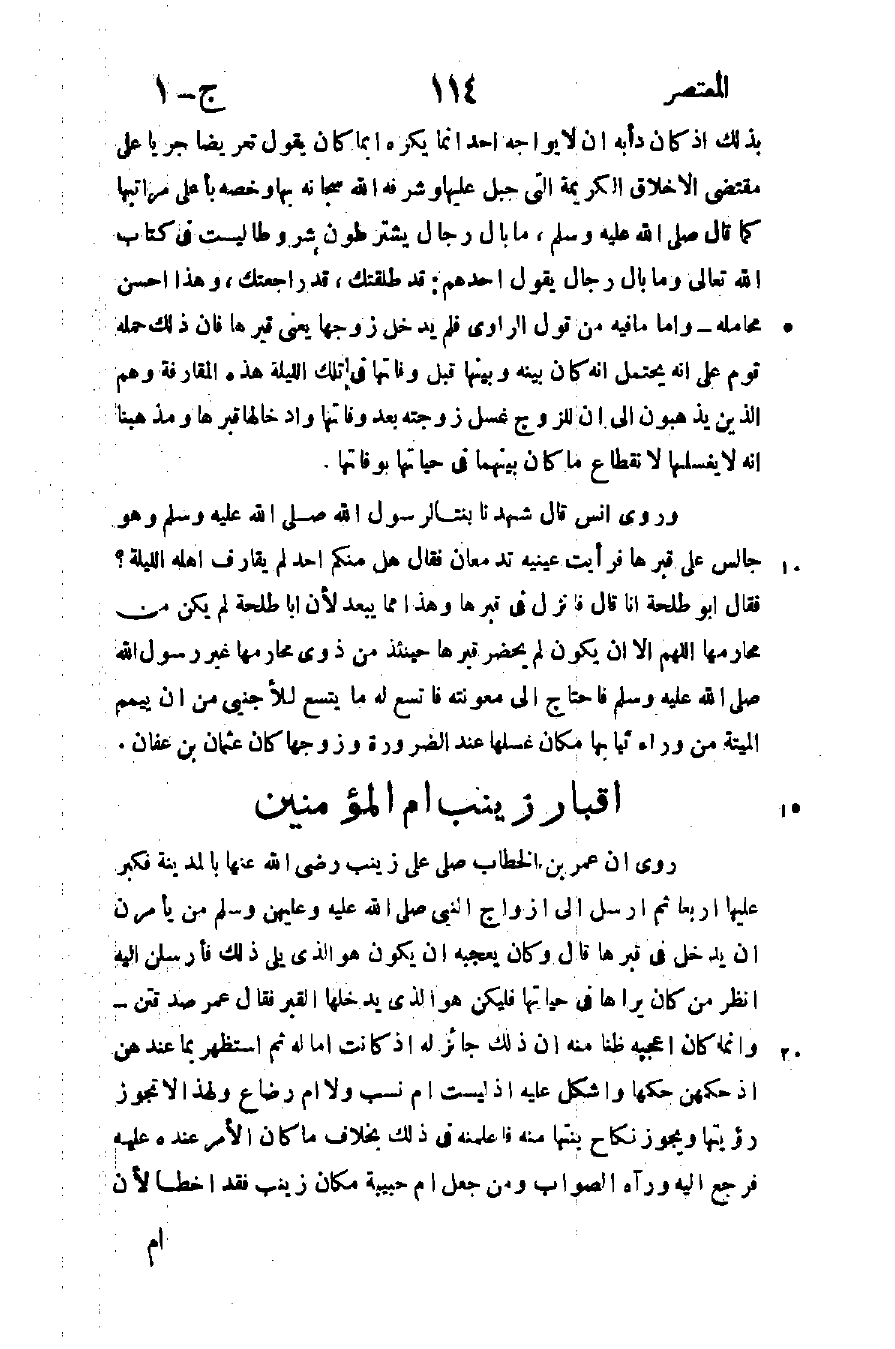 المعتصر ١١٤ ج - ١
بذلك اذ كان دأبه ان لا يواجه احدا بما يكره انما كان يقول تعريضا جريا على
مقتضى الاخلاق الكريمة التى جبل عليها وشرفه الله سبحانه بها وخصه بأعلى مراتبها
كما قال صلى الله عليه وسلم ، ما بال رجال يشترطون شروطا ليست فى كتاب
الله تعالى وما بال رجال يقول احدهم : قد طلقتك ، قد راجعتك ، وهذا احسن
محامله - واما ما فيه من قول الراوى فلم يدخل زوجها يعنى قبرها فان ذلك حمله ٥
قوم على انه يحتمل انه كان بينه وبينها قبل وفاتها فى تلك الليلة هذه المقارفة وهم
الذين يذهبون الى ان للزوج غسل زوجته بعد وفاتها وادخالها قبرها ومذهبنا
انه لا يغسلها لانقطاع ما كان بينهما فى حياتها بوفاتها .
وروى انس قال شهدنا بنتا لرسول الله صلى الله عليه وسلم وهو
جالس على قبرها فرأيت عينيه تدمعان فقال هل منكم احد لم يقارف اهله الليلة ؟ ١٠
فقال ابو طلحة انا قال فانزل فى قبرها وهذا مما يبعد لأن ابا طلحة لم يكن من
محارمها اللهم الا ان يكون لم يحضر قبرها حينئذ من ذوى محارمها غير رسول الله
صلى الله عليه وسلم فاحتاج الى معونته فاتسع له ما يتسع للأجنبى من ان ييمم
الميتة من وراء ثيابها مكان غسلها عند الضرورة وزوجها كان عثمان بن عفان .
اقبار زينب ام المؤمنين ١٥
روى ان عمر بن الخطاب صلى على زينب رضى الله عنها بالمدينة فكبر
عليها اربعا ثم ارسل الى ازواج النبى صلى الله عليه وعليهن وسلم من يأمرن
ان يدخل فى قبرها قال وكان يعجبه ان يكون هو الذى يلى ذلك فأرسلن اليه
انظر من كان يراها فى حياتها فليكن هو الذى يدخلها القبر فقال عمر صدقتن -
وانما كان اعجبه ظنا منه ان ذلك جائز له اذ كانت اما له ثم استظهر بما عندهن ٢٠
اذ حكمهن حكمها واشكل عليه اذ ليست ام نسب ولا ام رضاع ولهذا لا تجوز
رؤيتها ويجوز نكاح بنتها منه فاعلمنه فى ذلك بخلاف ما كان الأمر عنده عليه
فرجع اليه ورآه الصواب ومن جعل ام حبيبة مكان زينب فقد اخطأ لأن
ام